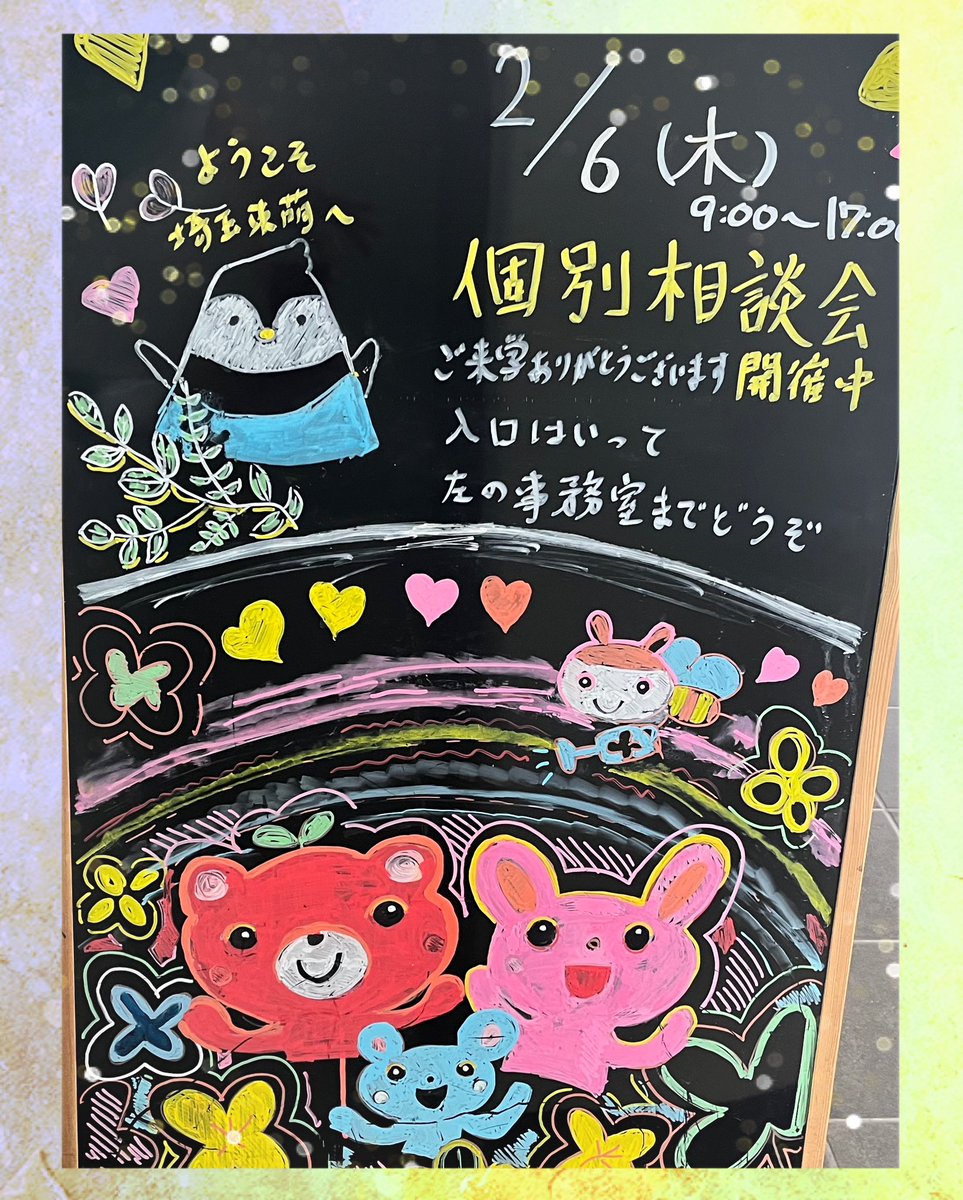 2/6(木)
9:00~17:00
ようこそ
埼玉東萌へ
個別相談会
開催中
ご来学ありがとうございます
入口はいって
左の事務室までどうぞ